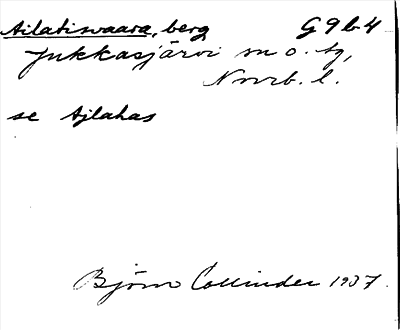 Ailatiswaara, berg G9b4
Jukkasjärvi sn o. tg,
Norrb. l.
se Ajlahas
Björn Collinder 1937.